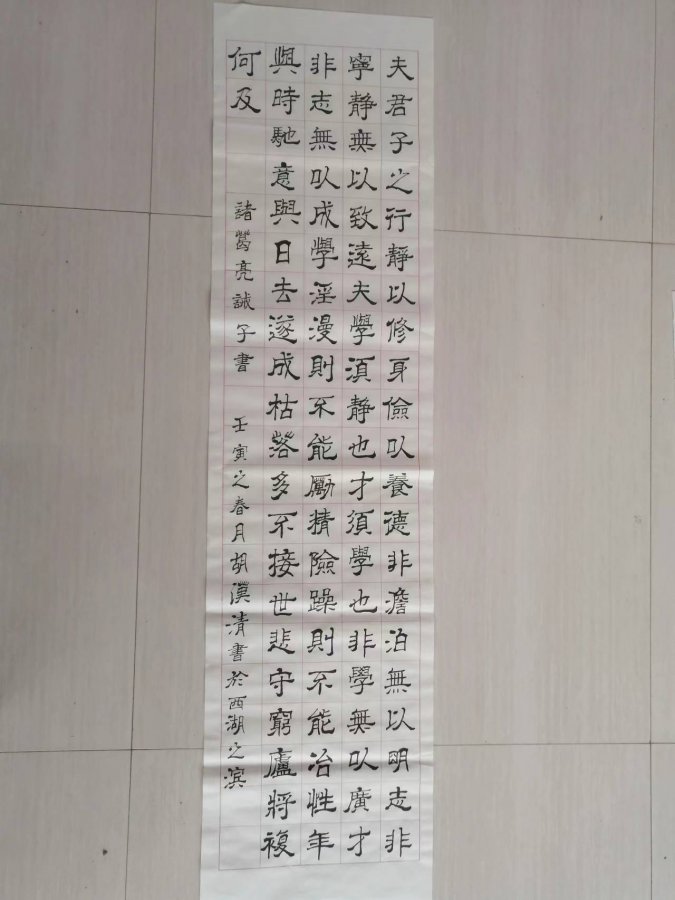 夫君子之行靜以修身儉以養德非澹泊無以明志非
寧靜無以致遠夫學須靜也才須學也非學無以廣才
非志無以成學淫漫則不能勵精險躁則不能冶性年
與時馳意與日去遂成枯落多不接世悲守窮廬將複
何及
諸葛亮誡子書 壬寅之春月胡漢清書於西湖之滨